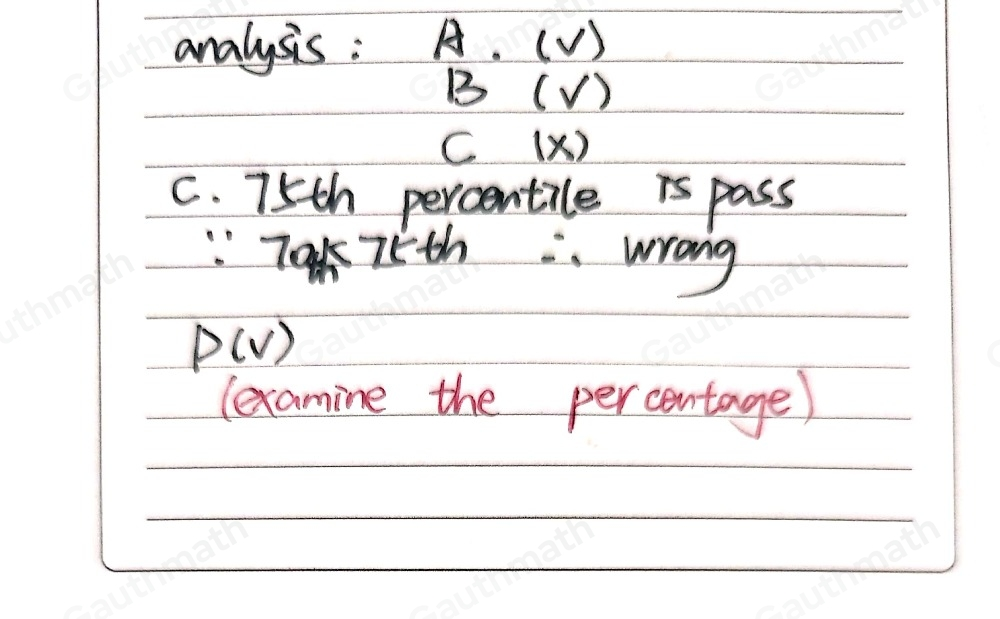 analysis : A . (√)
B (√)
C (x)
C. 75th percentile is pass
∵ 75th ∴ wrong
D(√)
(examine the percentage)
Gauthmath